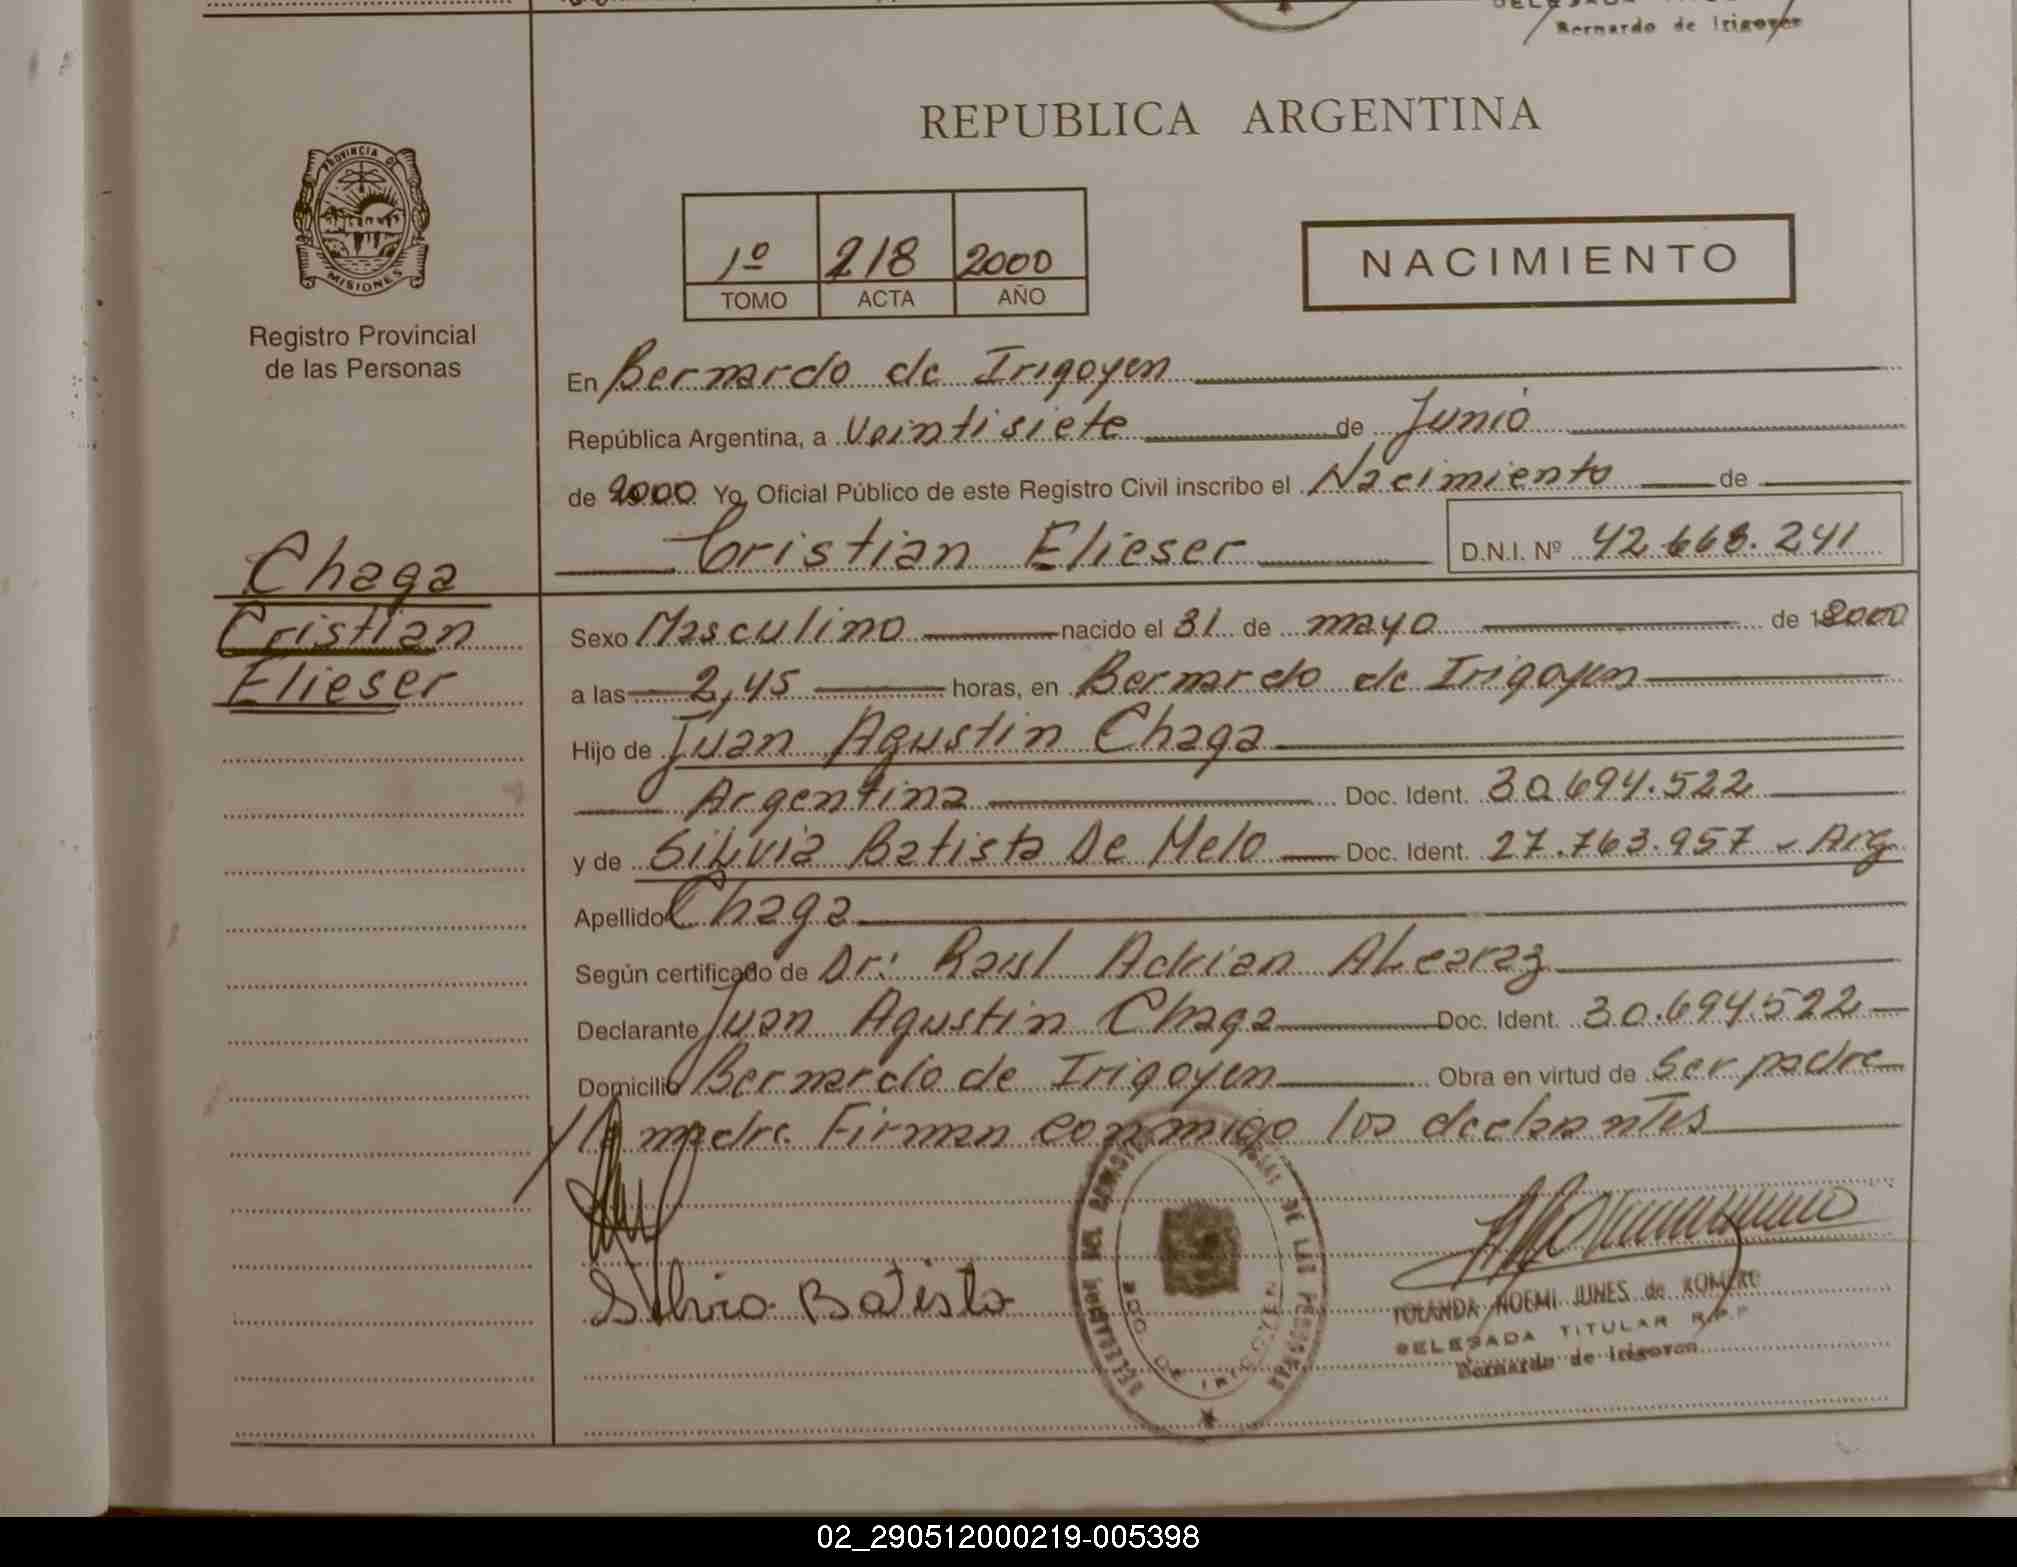 Bernardo de Irigoyen
REPUBLICA ARGENTINA
PROVINCIA DE
MISIONES
Registro Provincial
de las Personas
1º 218 2000
TOMO ACTA AÑO
NACIMIENTO
En Bernardo de Irigoyen
República Argentina, a Veintisiete de Junio
de 2000 Yo, Oficial Público de este Registro Civil inscribo el Nacimiento de
Cristian Elieser D.N.I. Nº 42.668.241
Chaga
Cristian
Elieser
Sexo Masculino nacido el 31 de mayo de 2000
a las 2,45 horas, en Bernardo de Irigoyen
Hijo de Juan Agustin Chaga
Argentina Doc. Ident. 30.694.522
y de Silvia Batista De Melo Doc. Ident. 27.763.957 - Arg
Apellido Chaga
Según certificado de Dr: Raul Adrian Alcaraz
Declarante Juan Agustin Chaga Doc. Ident. 30.694.522
Domicilio Bernardo de Irigoyen Obra en virtud de Ser padre
y la madre. Firman conmigo los declarantes
Silvia Batista
YOLANDA NOEMI JUNES de ROMERO
DELEGADA TITULAR R.P.P
Bernardo de Irigoyen
02_290512000219-005398